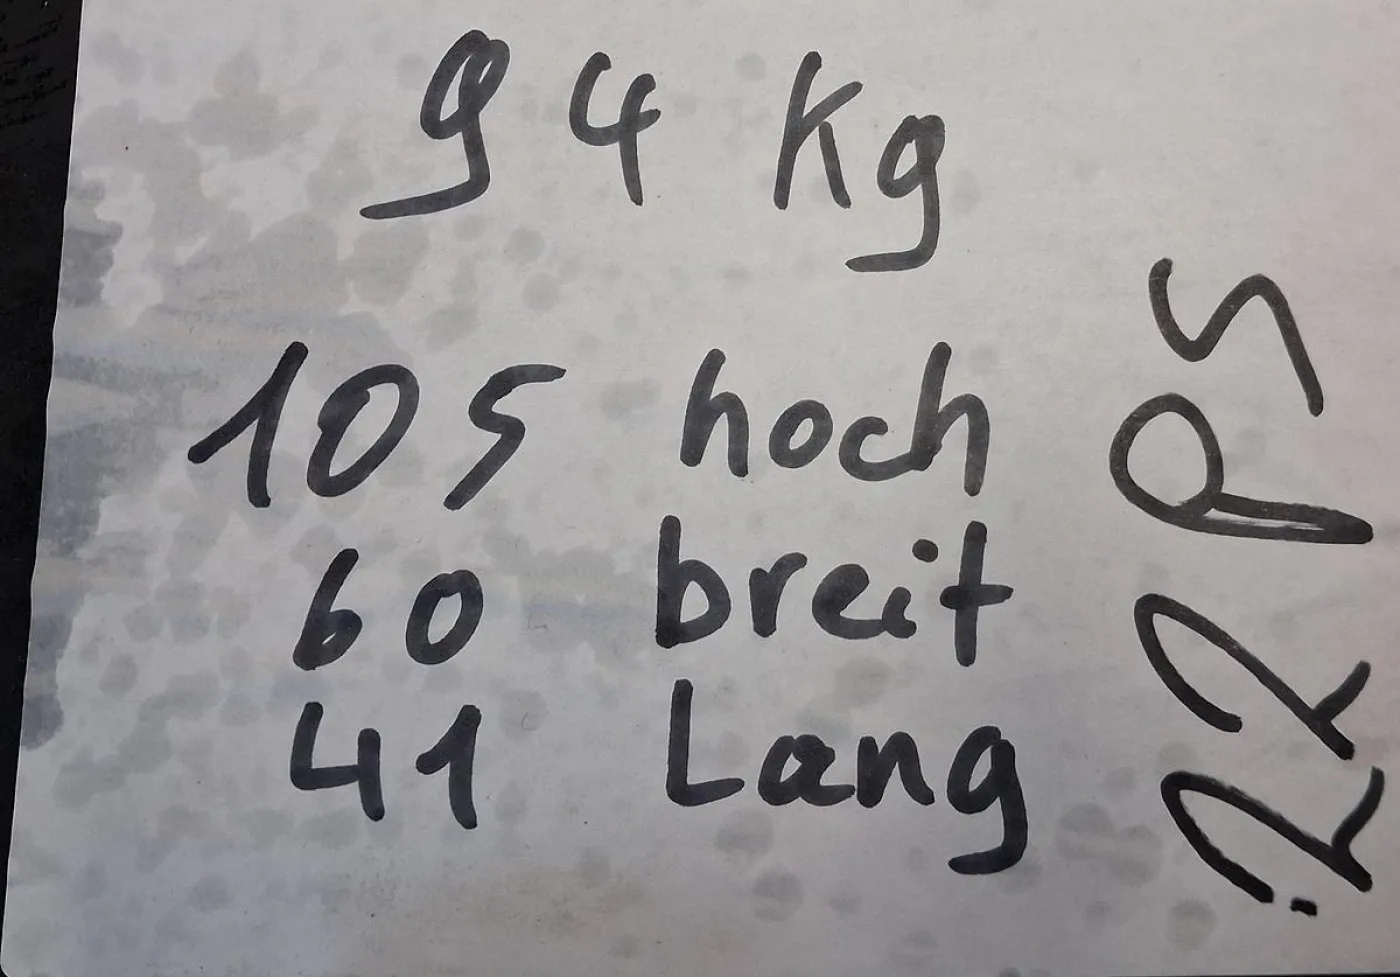 94 Kg
105 hoch
60 breit
41 Lang
.22 PS